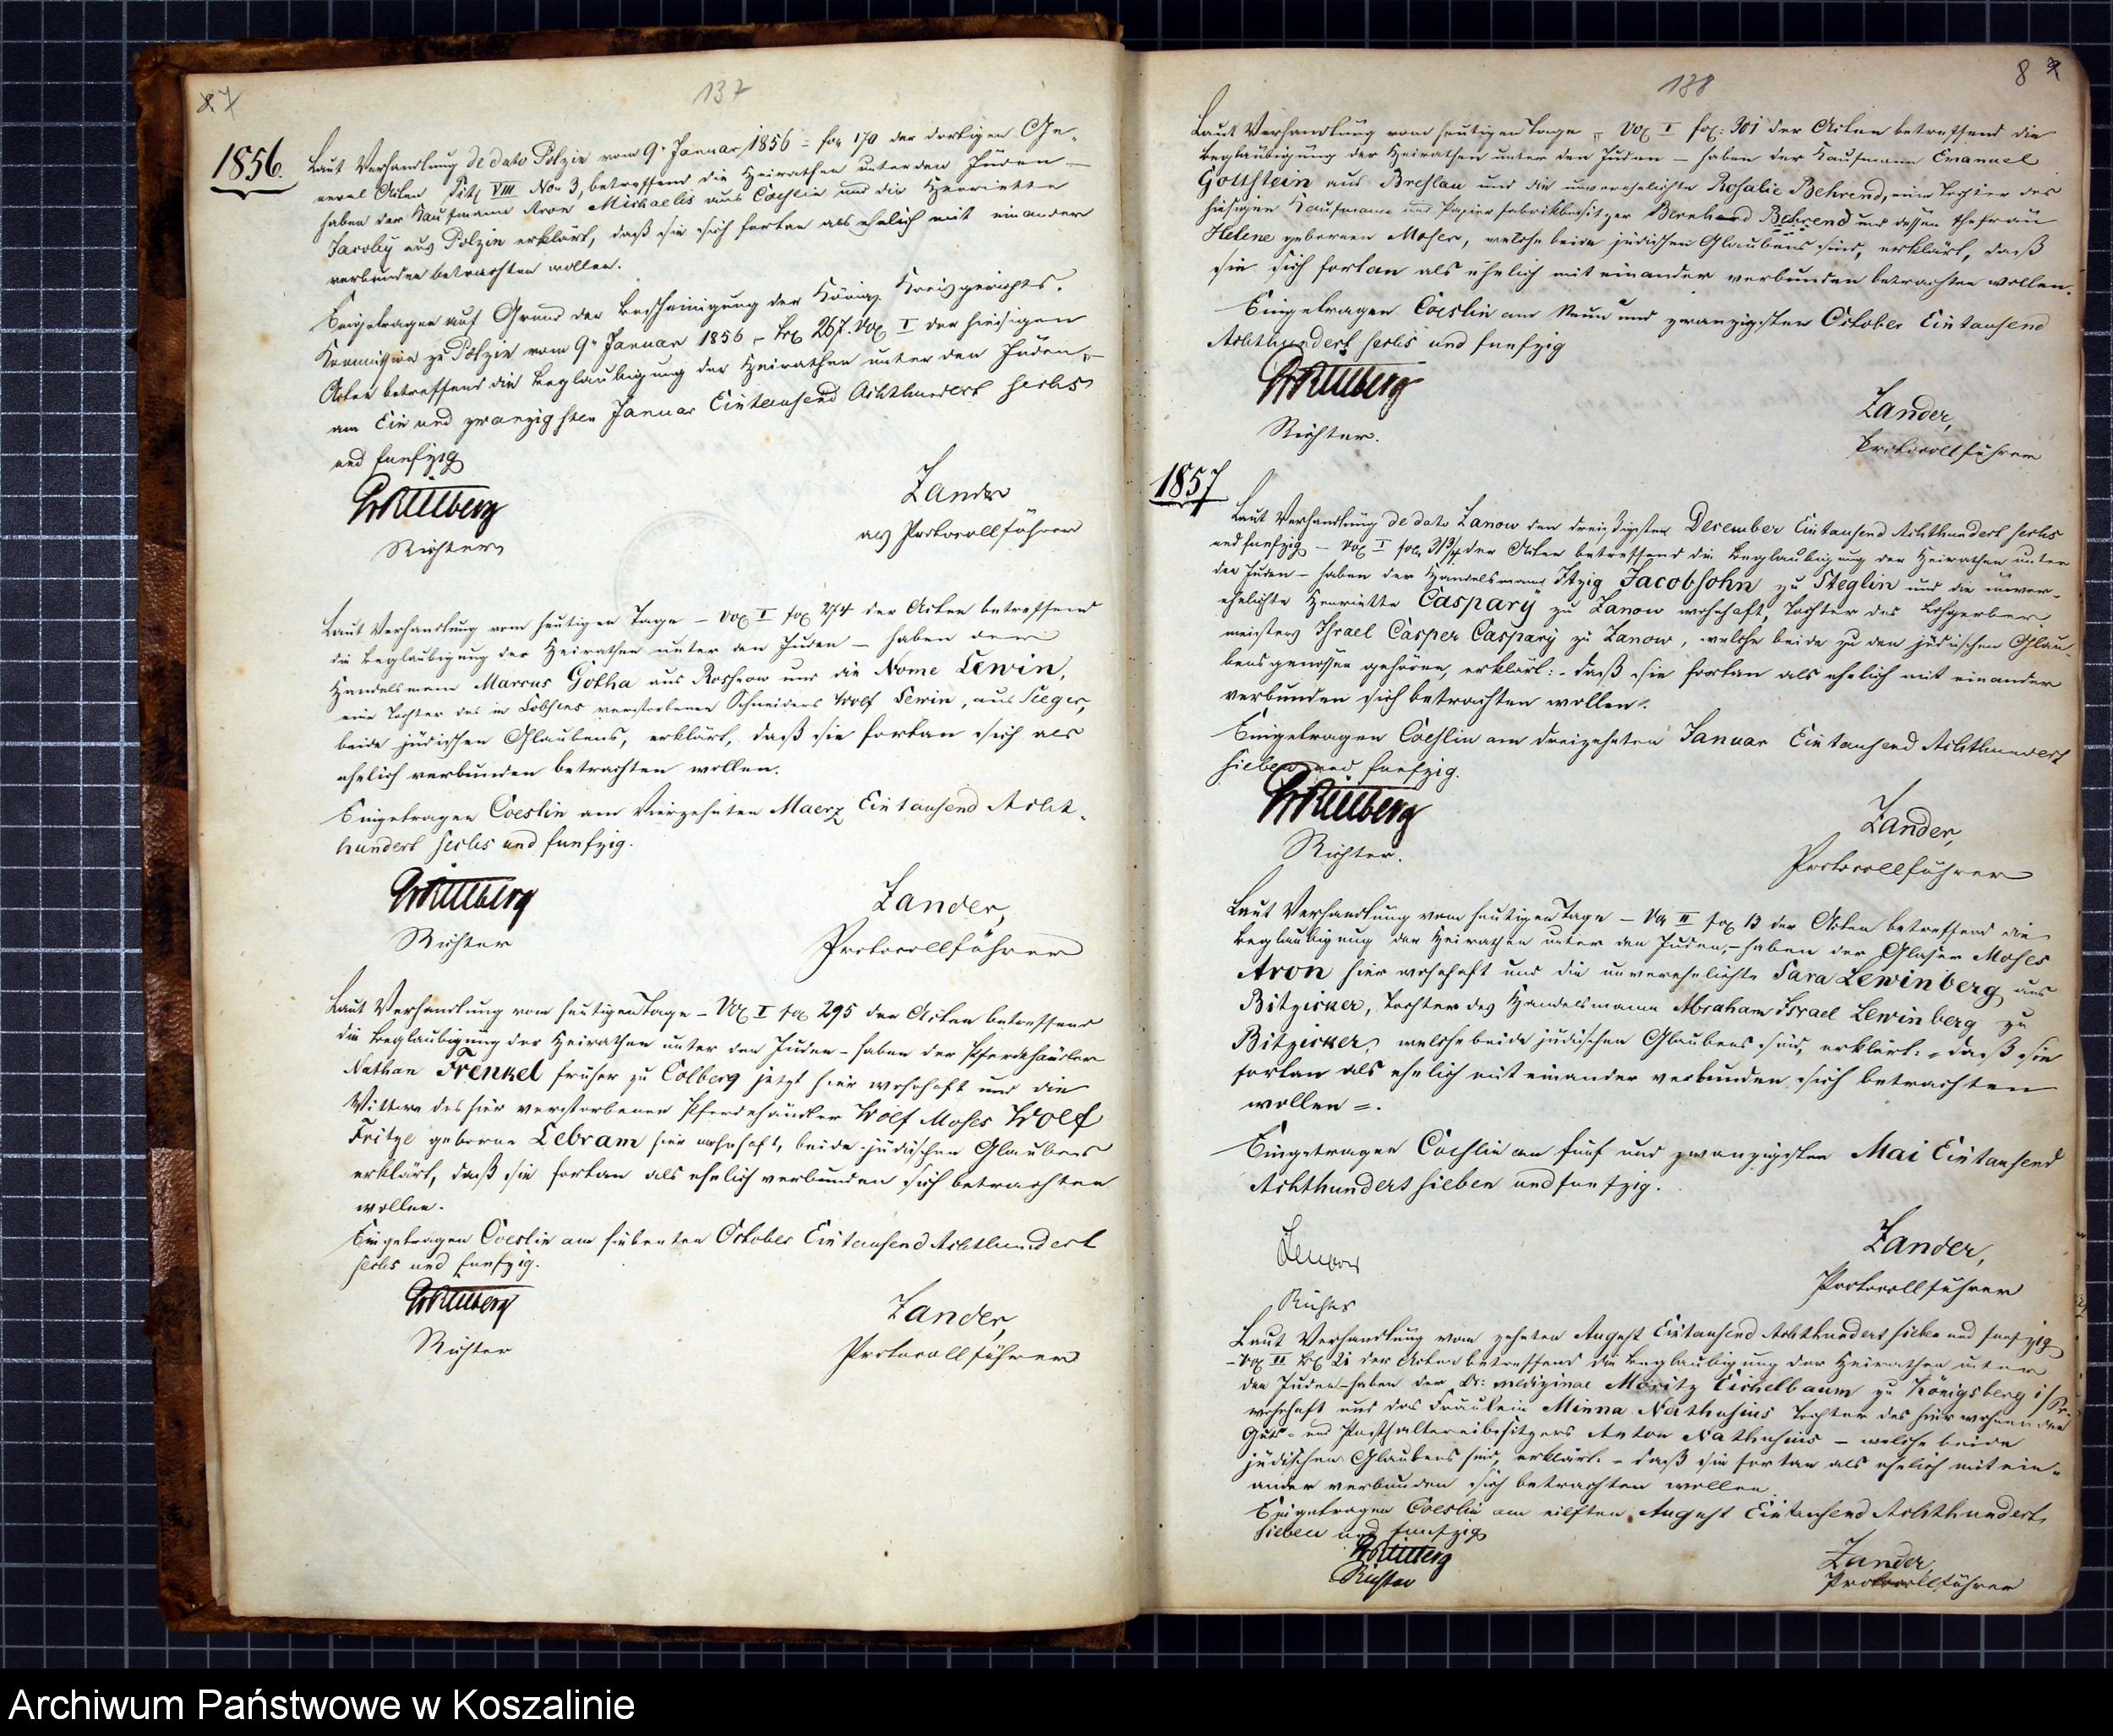 137
1856.
Laut Verhandlung de dato Polzin vom 9. Januar 1856 = fol 170 der dortigen Ge-
neral Acten Tit VIII No 3, betreffend die Heirathen unter den Juden –
haben der Kaufmann Aron Michaelis aus Coeslin und die Henriette
Jacoby aus Polzin erklärt, daß sie sich fortan als ehelich mit einander
verbunden betrachten wollen.
Eingetragen auf Grund der Bescheinigung der Königl. Kreisgerichts-
Kommission zu Polzin vom 9. Januar 1856 – fol 267. Vol I der hiesigen
Acten betreffend die Beglaubigung der Heirathen unter den Juden –
am Ein und zwanzigsten Januar Eintausend Achthundert sechs
und funfzig
Richter
Zander
als Protocollführer
Laut Verhandlung vom heutigen Tage – Vol I fol 274 der Acten betreffend
die Beglaubigung der Heirathen unter den Juden – haben der
Handelsmann Marcus Gotha aus und die Nome Lewin,
eine Tochter des in Lobsens verstorbenen Schneiders Wolf Lewin, aus Seeger,
beide jüdischen Glaubens, erklärt, daß sie fortan sich als
ehelich verbunden betrachten wollen.
Eingetragen Coeslin am Vierzehnten Maerz Eintausend Acht-
hundert sechs und funfzig.
Richter
Zander,
Protocollführer
Laut Verhandlung vom heutigen Tage – Vol I fol 295 der Acten betreffend
die Beglaubigung der Heirathen unter den Juden – haben der Pferdehändler
Nathan Frenkel früher zu Colberg jetzt hier wohnhaft und die
Wittwe des hier verstorbenen Pferdehändler Wolf Moses Wolf
Fritze geborne Lebram hier wohnhaft, beide jüdischen Glaubens
erklärt, daß sie fortan als ehelich verbunden sich betrachten
wollen.
Eingetragen Coeslin am siebenten October Eintausend Achthundert
sechs und funfzig.
Richter
Zander,
Protocollführer
138
8
Laut Verhandlung vom heutigen Tage – Vol I fol: 301 der Acten betreffend die
Beglaubigung der Heirathen unter den Juden – haben der Kaufmann Emanuel
Gottstein aus Breslau und die unverehelichte Rosalie Behrend, eine Tochter des
hiesigen Kaufmann und Papierfabrikbesitzer Bernhard Behrend und dessen Ehefrau
Helene gebornen Moser, welche beide jüdischen Glaubens sind, erklärt, daß
sie sich fortan als ehelich mit einander verbunden betrachten wollen.
Eingetragen Coeslin am Neun und zwanzigsten October Eintausend
Achthundert sechs und funfzig
Richter.
Zander,
Protocollführer
1857
Laut Verhandlung de dato Zanow den dreissigsten December Eintausend Achthundert sechs
und funfzig – Vol I fol 313/4 der Acten betreffend die Beglaubigung der Heirathen unter
den Juden – haben der Handelsmann Itzig Jacobsohn zu Steglin und die unver-
ehelichte Henriette Caspary zu Zanow wohnhaft, Tochter des Lohgerber-
meisters Israel Casper Caspary zu Zanow, welche beide zu den jüdischen Glau-
bensgenossen gehören, erklärt: – daß sie fortan als ehelich mit einander
verbunden sich betrachten wollen.
Eingetragen Coeslin am dreizehnten Januar Eintausend Achthundert
sieben und funfzig.
Richter.
Zander,
Protocollführer
Laut Verhandlung vom heutigen Tage – Vol II fol 13 der Acten betreffend die
Beglaubigung der Heirathen unter den Juden, – haben der Glaser Moses
Aron hier wohnhaft und die unverehelichte Sara Lewinberg aus
Bitzicker, Tochter des Handelsmann Abraham Israel Lewinberg zu
Bitzicker, welche beide jüdischen Glaubens sind, erklärt: – daß sie
fortan als ehelich mit einander verbunden sich betrachten
wollen =.
Eingetragen Coeslin am fünf und zwanzigsten Mai Eintausend
Achthundert sieben und funfzig.
Richter
Zander,
Protocollführer
Laut Verhandlung vom zehnten August Eintausend Achthundert sieben und funfzig
– Vol II fol 21 der Acten betreffend die Beglaubigung der Heirathen unter
den Juden – haben der Dr: medizinae Moritz Eichelbaum zu Königsberg i/Pr.
wohnhaft und das Fräulein Minna Nathusius Tochter des hier wohnenden
Guts- und Posthaltereibesitzers Anton Nathusius – welche beide
jüdischen Glaubens sind, erklärt. – daß sie fortan als ehelich mit ein-
ander verbunden sich betrachten wollen.
Eingetragen Coeslin am eilften August Eintausend Achthundert
sieben und funfzig
Richter
Zander
Protocollführer
Archiwum Państwowe w Koszalinie